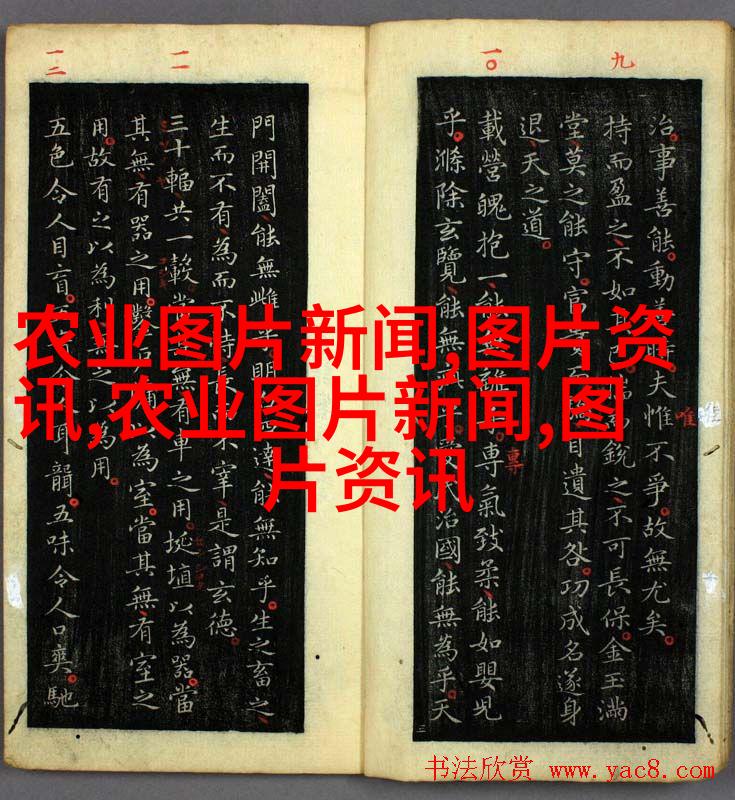 九
一〇
一一
一二
治事善能動善時夫惟不爭故無尤矣
唯
持而盈之不如其已揣而銳之不可長保金玉滿
堂莫之能守富貴而驕自遺其咎功成名遂身
退天之道
載營魄抱一能無離乎專氣致柔能如嬰兒
專
乎滌除玄覽能無疵乎愛民治國能無為乎天
門開闔能無雌乎明白四達能無知乎生之畜之
生而不有為而不恃長而不宰是謂玄德
三十輻共一轂當其無有車之用埏埴以為器當
其無有器之用鑿戶牖以為室當其無有室之
用故有之以為利無之以為用
五色令人目盲五音令人耳聾五味令人口爽馳
农业图片新闻,图片资
讯,农业图片新闻,图
片资讯
书法欣赏 www.yac8.com